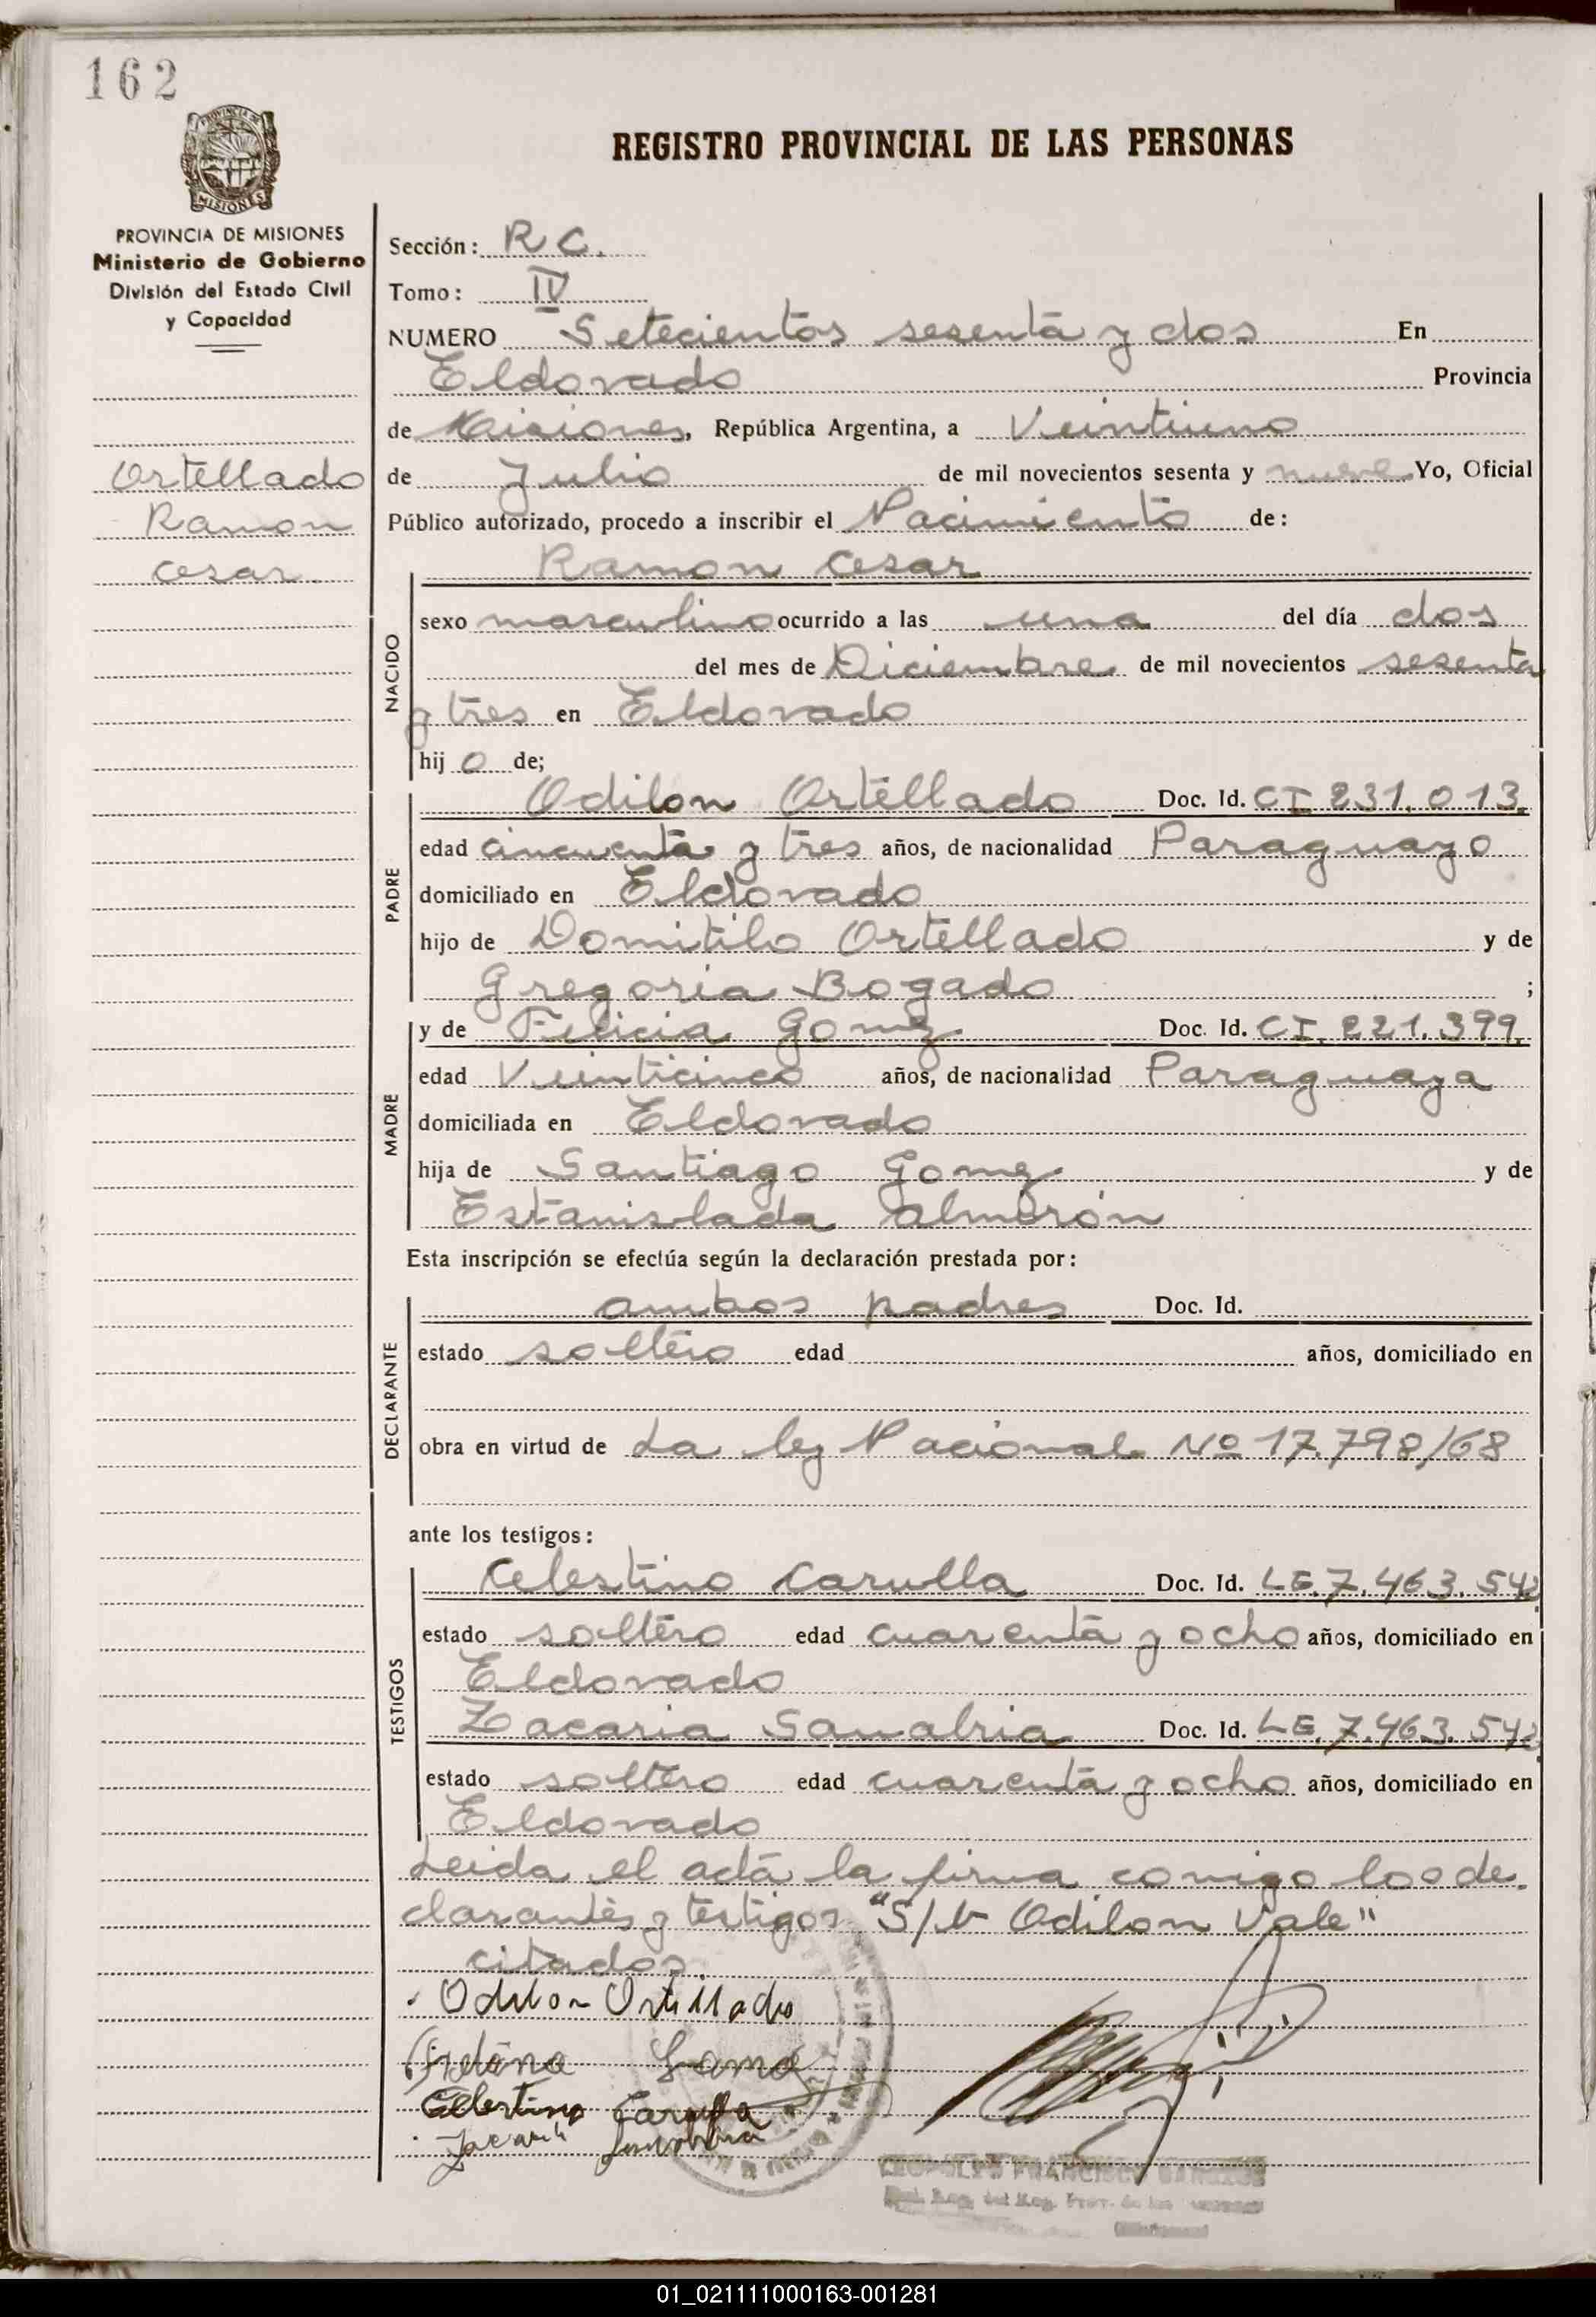 162
PROVINCIA DE MISIONES
Ministerio de Gobierno
División del Estado Civil
y Capacidad
Ortellado
Ramon
Cesar
REGISTRO PROVINCIAL DE LAS PERSONAS
Sección: R C.
Tomo: IV
NUMERO Setecientos sesenta y dos En
Eldorado Provincia
de Misiones, República Argentina, a Veintiuno
de Julio de mil novecientos sesenta y nueve Yo, Oficial
Público autorizado, procedo a inscribir el Nacimiento de:
Ramon Cesar
NACIDO
sexo masculino ocurrido a las una del día dos
del mes de Diciembre de mil novecientos sesenta
y tres en Eldorado
hij o de;
PADRE
Odilon Ortellado Doc. Id. CI 231.013.
edad cincuenta y tres años, de nacionalidad Paraguayo
domiciliado en Eldorado
hijo de Domitilo Ortellado y de
Gregoria Bogado ;
MADRE
y de Felicia Gomez Doc. Id. CI. 221.399.
edad Veinticinco años, de nacionalidad Paraguaya
domiciliada en Eldorado
hija de Santiago Gomez y de
Estanislada Almirón
Esta inscripción se efectúa según la declaración prestada por:
DECLARANTE
ambos padres Doc. Id.
estado soltero edad años, domiciliado en
obra en virtud de La ley Nacional Nº 17.798/68
ante los testigos:
TESTIGOS
Celestino Carulla Doc. Id. LE. 7.463.542
estado soltero edad cuarenta y ocho años, domiciliado en
Eldorado
Zacaria Sanabria Doc. Id. LE. 7.463.542
estado soltero edad cuarenta y ocho años, domiciliado en
Eldorado
Leida el acta la firma comigo los de.
clarantes y testigos "S/b Odilon Vale"
citados.
Odilon Ortillado
Celestino Carulla
FRANCISCO
01_021111000163-001281